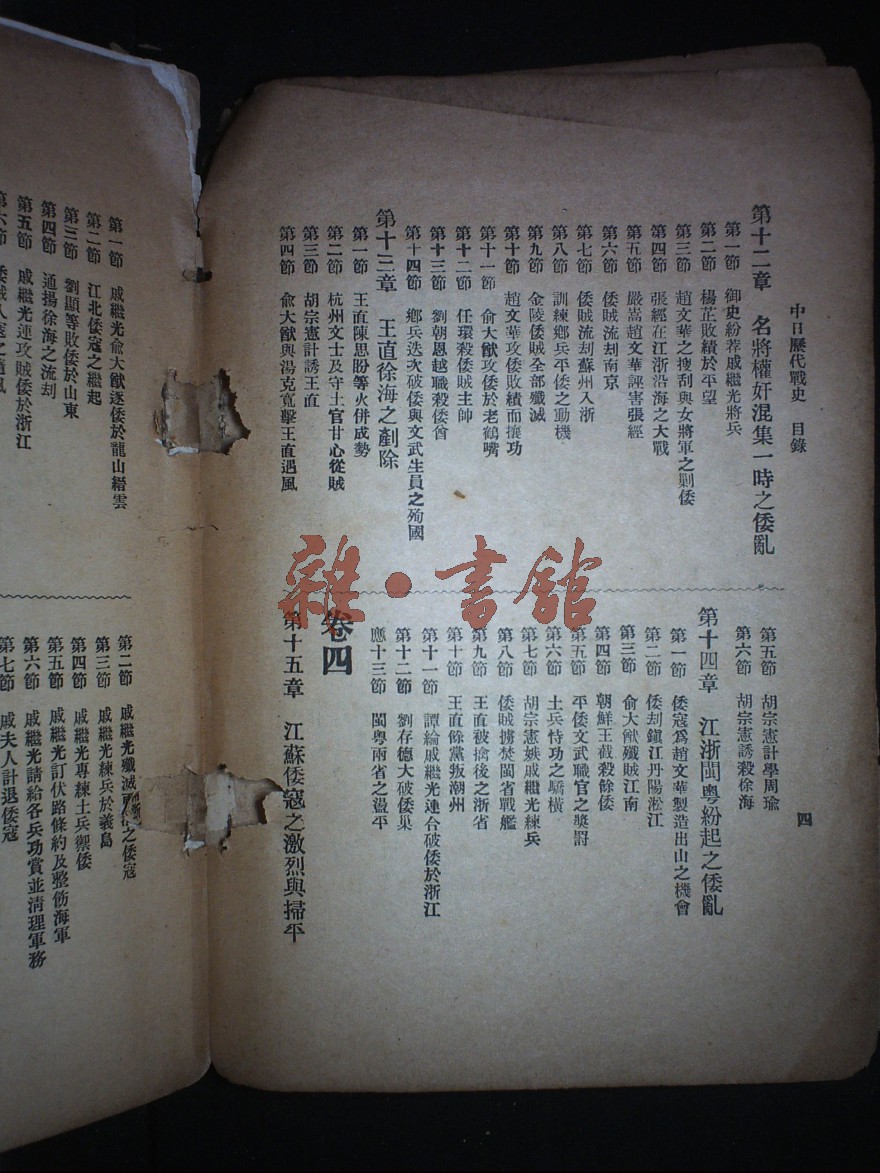 中日歷代戰史　目錄
四
第十二章　名將權奸混集一時之倭亂
第一節　御史紛荐戚繼光將兵
第二節　楊芷敗績於平望
第三節　趙文華之搜刮與女將軍之剿倭
第四節　張經在江浙沿海之大戰
第五節　嚴嵩趙文華誣害張經
第六節　倭賊流刦南京
第七節　倭賊流刦蘇州入浙
第八節　訓練鄉兵平倭之動機
第九節　金陵倭賊全部殲滅
第十節　趙文華攻倭敗績而攘功
第十一節　俞大猷攻倭於老鶴嘴
第十二節　任環殺倭賊主帥
第十三節　劉朝恩越職殺倭酋
第十四節　鄉兵迭次破倭與文武生員之殉國
第十三章　王直徐海之剷除
第一節　王直陳思盼等火併成勢
第二節　杭州文士及守土官甘心從賊
第三節　胡宗憲計誘王直
第四節　俞大猷與湯克寬擊王直遇風
第五節　胡宗憲計學周瑜
第六節　胡宗憲誘殺徐海
第十四章　江浙閩粵紛起之倭亂
第一節　倭寇爲趙文華製造出山之機會
第二節　倭刦鎮江丹陽淞江
第三節　俞大猷殲賊江南
第四節　朝鮮王截殺餘倭
第五節　平倭文武職官之獎罰
第六節　土兵恃功之驕橫
第七節　胡宗憲嫉戚繼光練兵
第八節　倭賊擄焚閩省戰艦
第九節　王直被擒後之浙省
第十節　王直餘黨叛潮州
第十一節　譚綸戚繼光連合破倭於浙江
第十二節　劉存德大破倭巢
應十三節　閩粵兩省之盪平
卷四
第十五章　江蘇倭寇之激烈與掃平
第一節　戚繼光俞大猷逐倭於龍山縉雲
第二節　江北倭寇之繼起
第三節　劉顯等敗倭於山東
第四節　通揚徐海之流刦
第五節　戚繼光連攻賊倭於浙江
第六節　倭賊入寇之遭風
第二節　戚繼光殲滅之倭寇
第三節　戚繼光練兵於義烏
第四節　戚繼光專練土兵禦倭
第五節　戚繼光訂伏路條約及整飭海軍
第六節　戚繼光請給各兵功賞並清理軍務
第七節　戚夫人計退倭寇
雜·書館